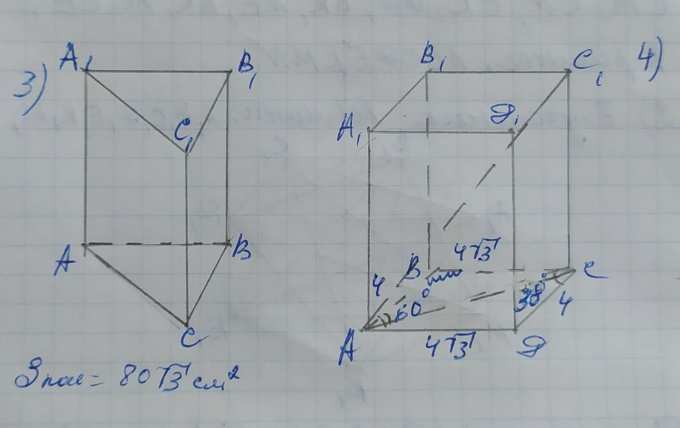 3)
A₁
B₁
C₁
A
B
C
Sпол = 80√3 см²
4)
B₁
C₁
A₁
D₁
B
4√3
C
4
60°
30°
4
A
4√3
D